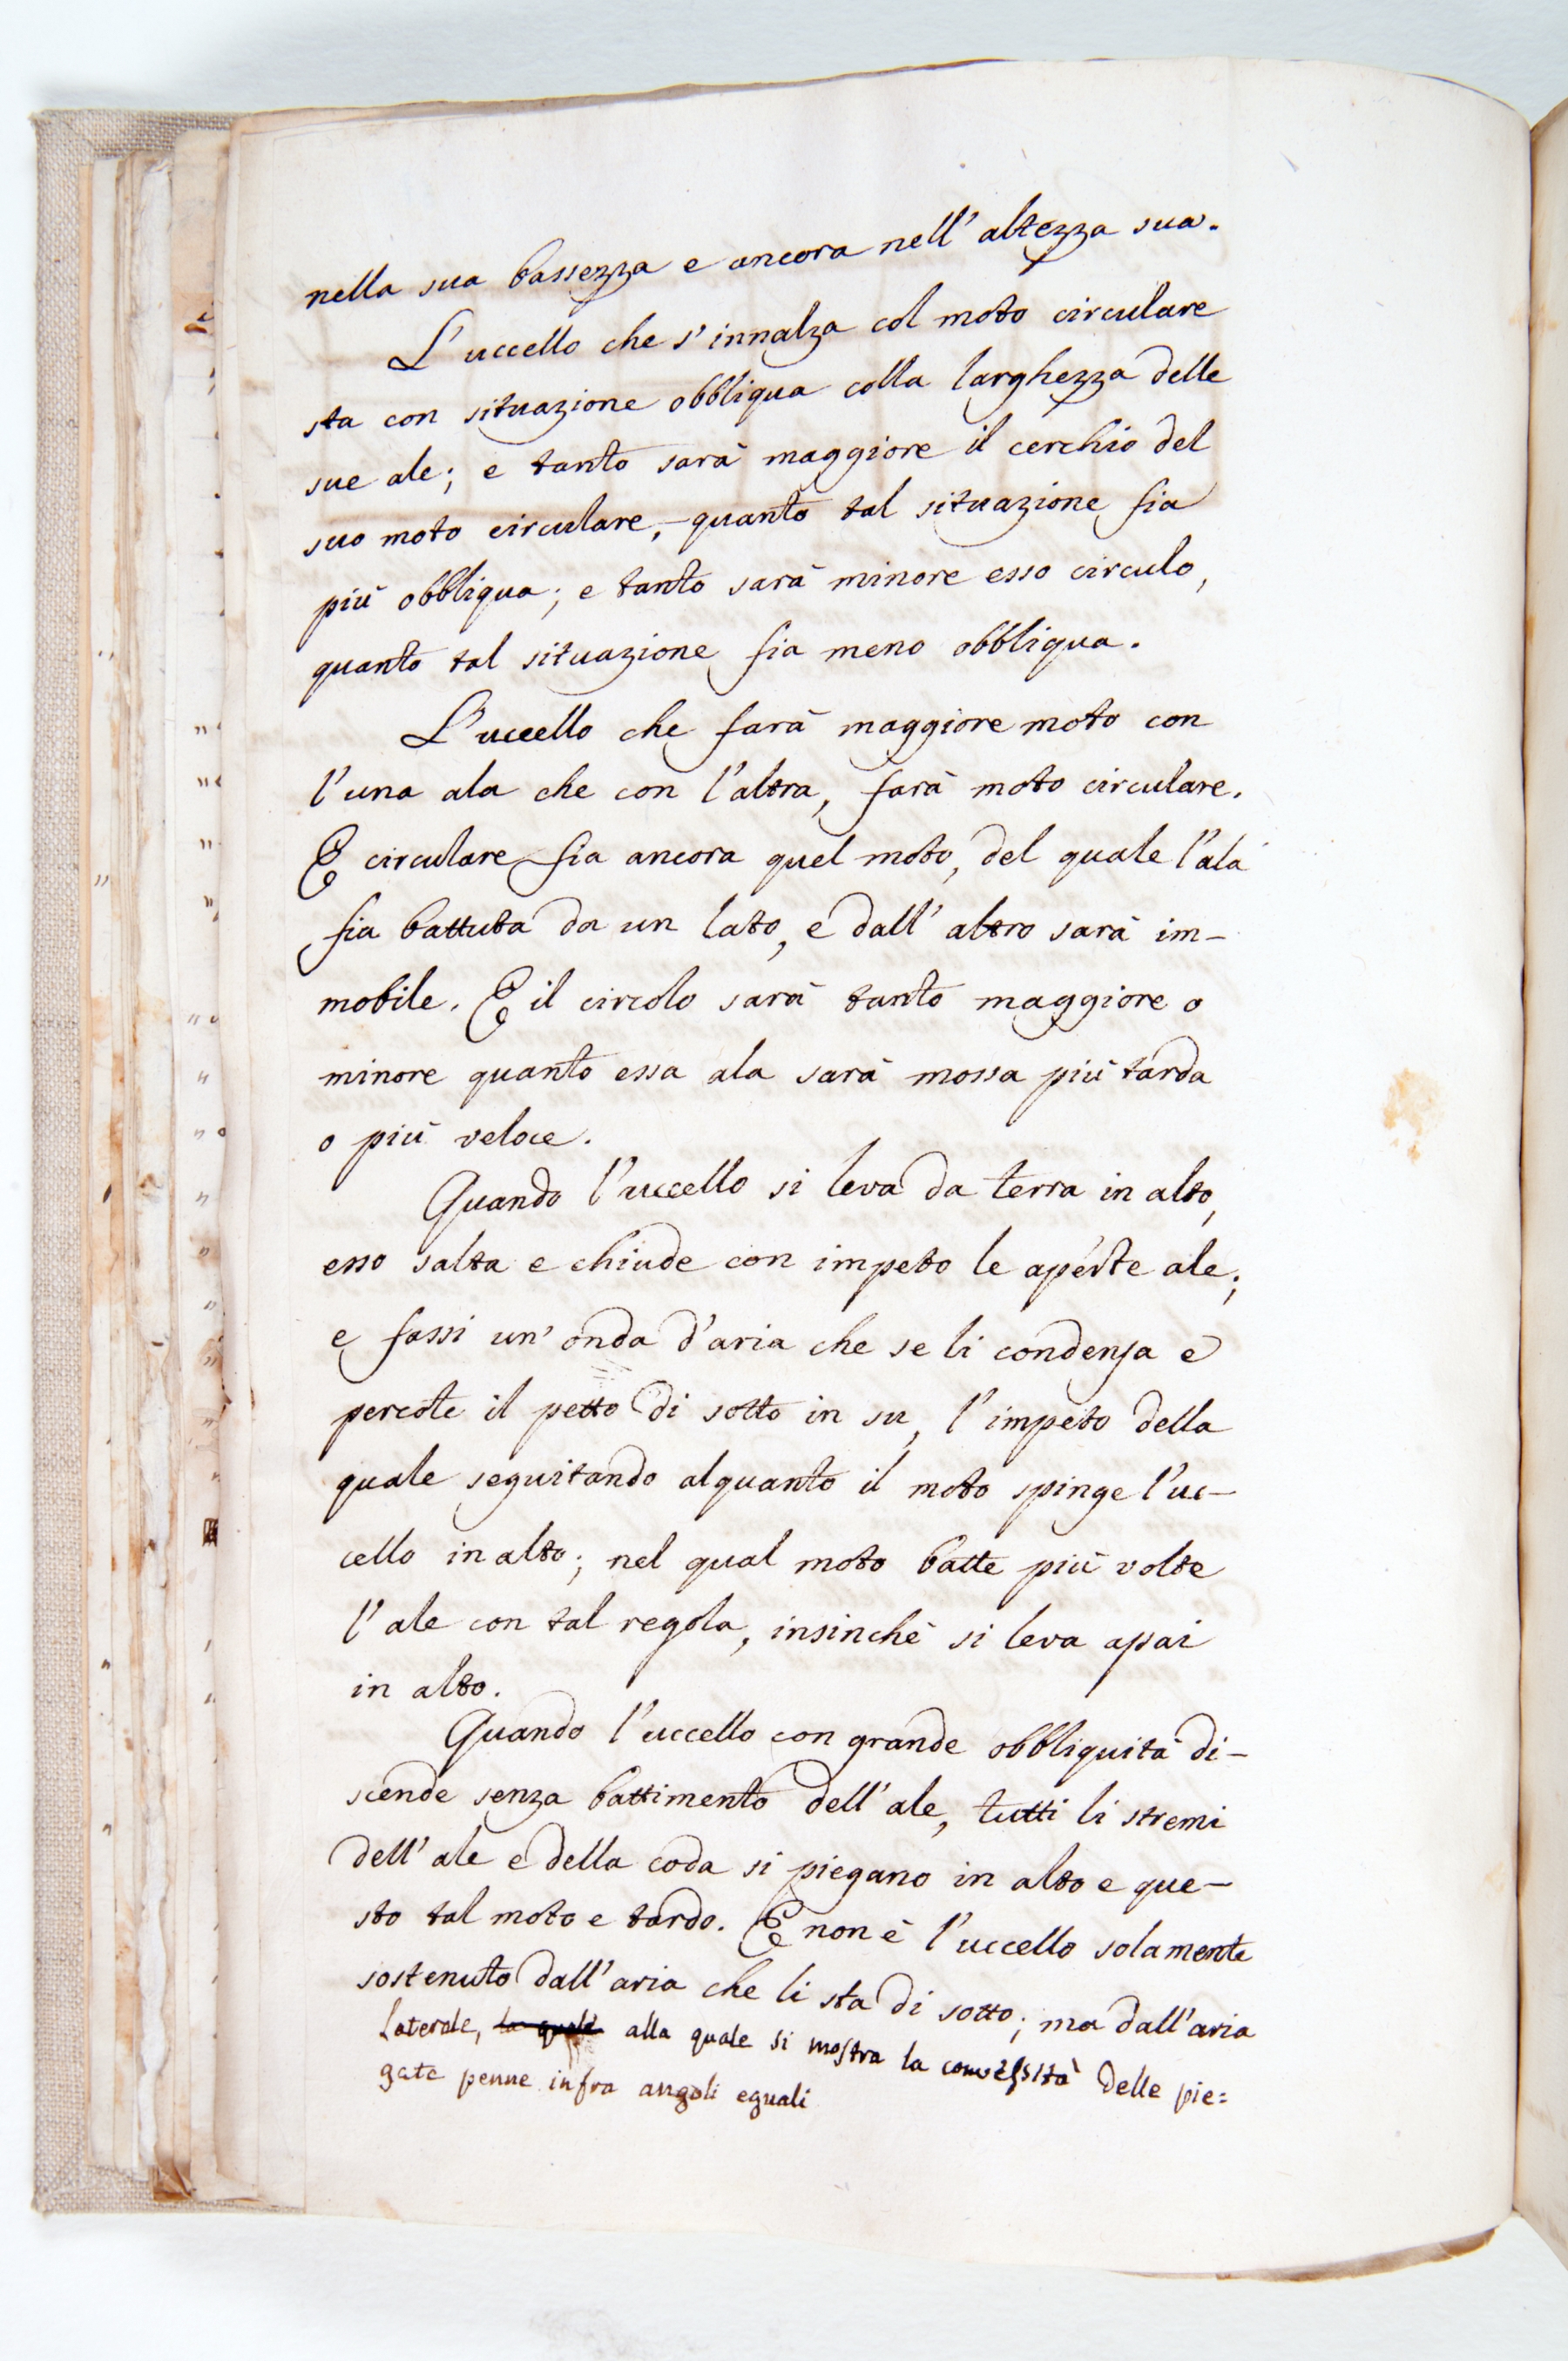 nella sua bassezza e ancora nell'altezza sua.
L'uccello che s'innalza col moto circulare
sta con situazione obbliqua colla larghezza delle
sue ale; e tanto sarà maggiore il cerchio del
suo moto circulare, quanto tal situazione fia
più obbliqua; e tanto sarà minore esso circulo,
quanto tal situazione fia meno obbliqua.
L'uccello che farà maggiore moto con
l'una ala che con l'altra, farà moto circulare.
E circulare fia ancora quel moto, del quale l'ala
fia battuta da un lato, e dall'altro sarà im-
mobile. E il circolo sarà tanto maggiore o
minore quanto essa ala sarà mossa più tarda
o più veloce.
Quando l'uccello si leva da terra in alto,
esso salta e chiude con impeto le aperte ale;
e fassi un'onda d'aria che se li condensa e
percote il petto di sotto in su, l'impeto della
quale seguitando alquanto il moto spinge l'uc-
cello in alto; nel qual moto batte più volte
l'ale con tal regola, insinchè si leva apai
in alto.
Quando l'uccello con grande obbliquità di-
scende senza battimento dell'ale, tutti li stremi
dell'ale e della coda si piegano in alto e que-
sto tal moto e tardo. E non è l'uccello solamente
sostenuto dall'aria che li sta di sotto; ma dall'aria
laterale, la quale alla quale si mostra la convessità delle pie=
gate penne infra angoli eguali